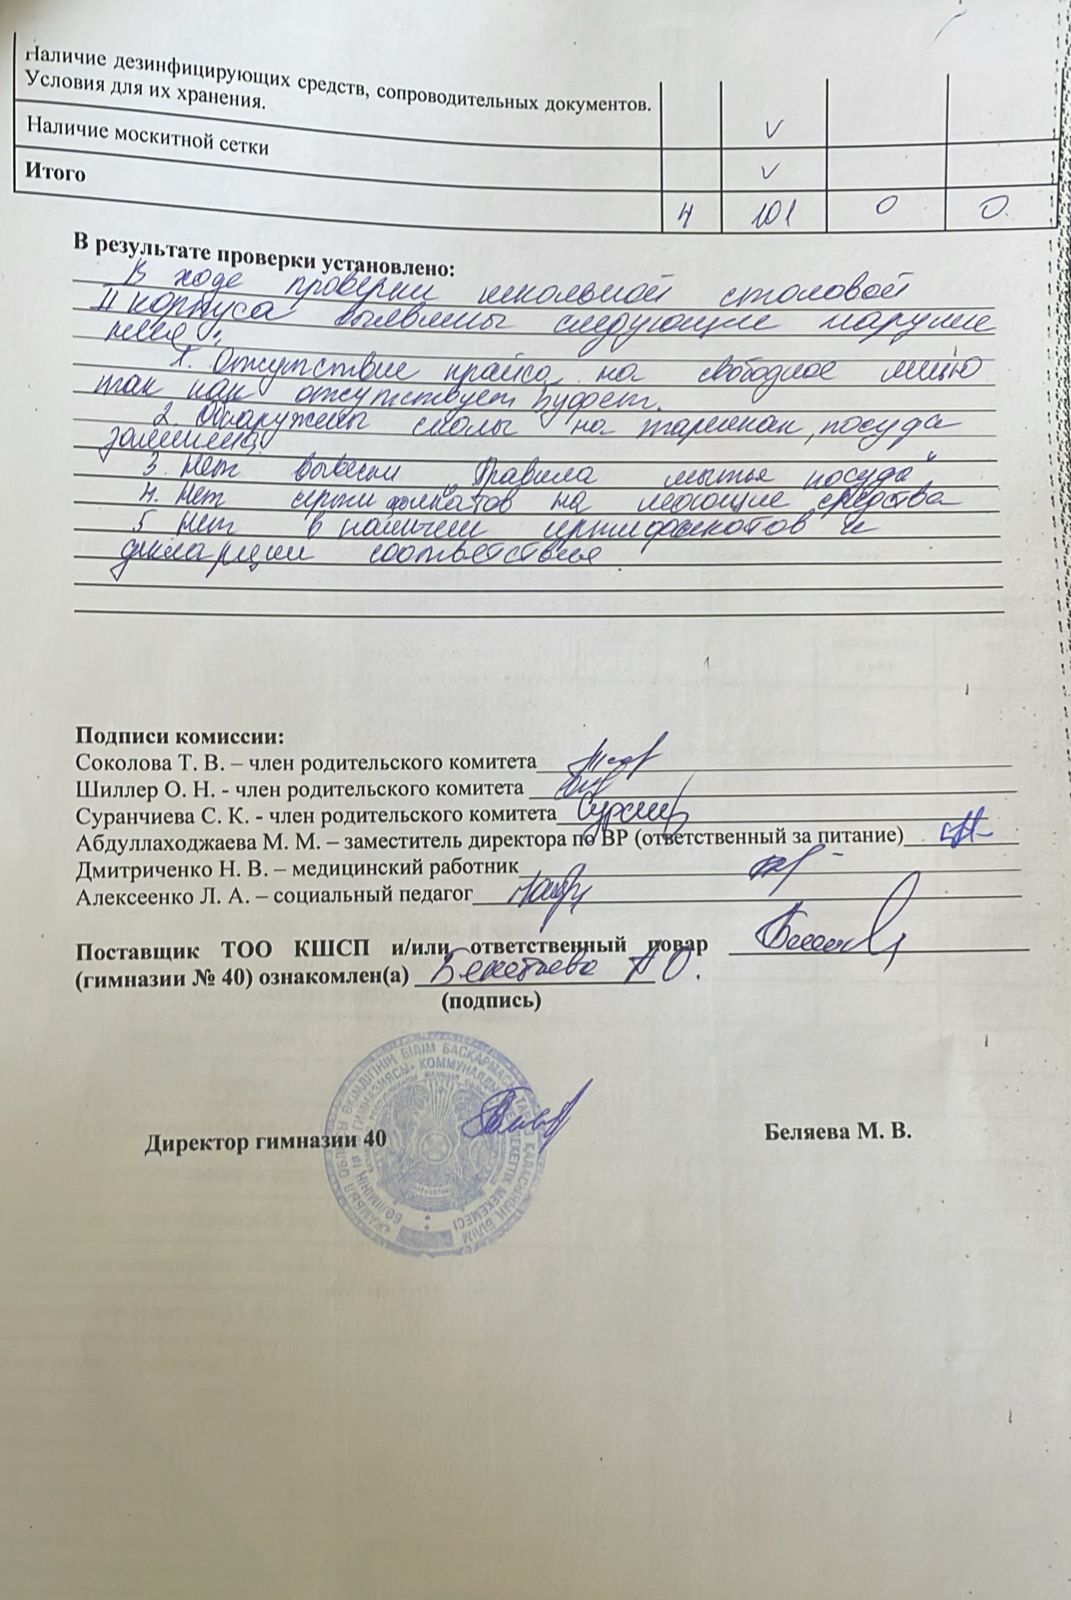 Наличие дезинфицирующих средств, сопроводительных документов.
Условия для их хранения.
Наличие москитной сетки
Итого 4 101 0 0
В результате проверки установлено:
В ходе проверки школьной столовой
II корпуса выявлены следующие наруше
ния:
1. Отсутствие прайса на свободное меню
так как отсутствует буфет.
2. Обнаружены сколы на тарелках, посуда
заменена.
3. Нет вывески "Правила мытья посуды"
4. Нет сертификатов на моющие средства
5 Нет в наличии сертификатов и
декларации соответствия
Подписи комиссии:
Соколова Т. В. – член родительского комитета
Шиллер О. Н. - член родительского комитета
Суранчиева С. К. - член родительского комитета
Абдуллаходжаева М. М. – заместитель директора по ВР (ответственный за питание)
Дмитриченко Н. В. – медицинский работник
Алексеенко Л. А. – социальный педагог
Поставщик ТОО КШСП и/или ответственный повар
(гимназии № 40) ознакомлен(а)
(подпись)
Директор гимназии 40 Беляева М. В.